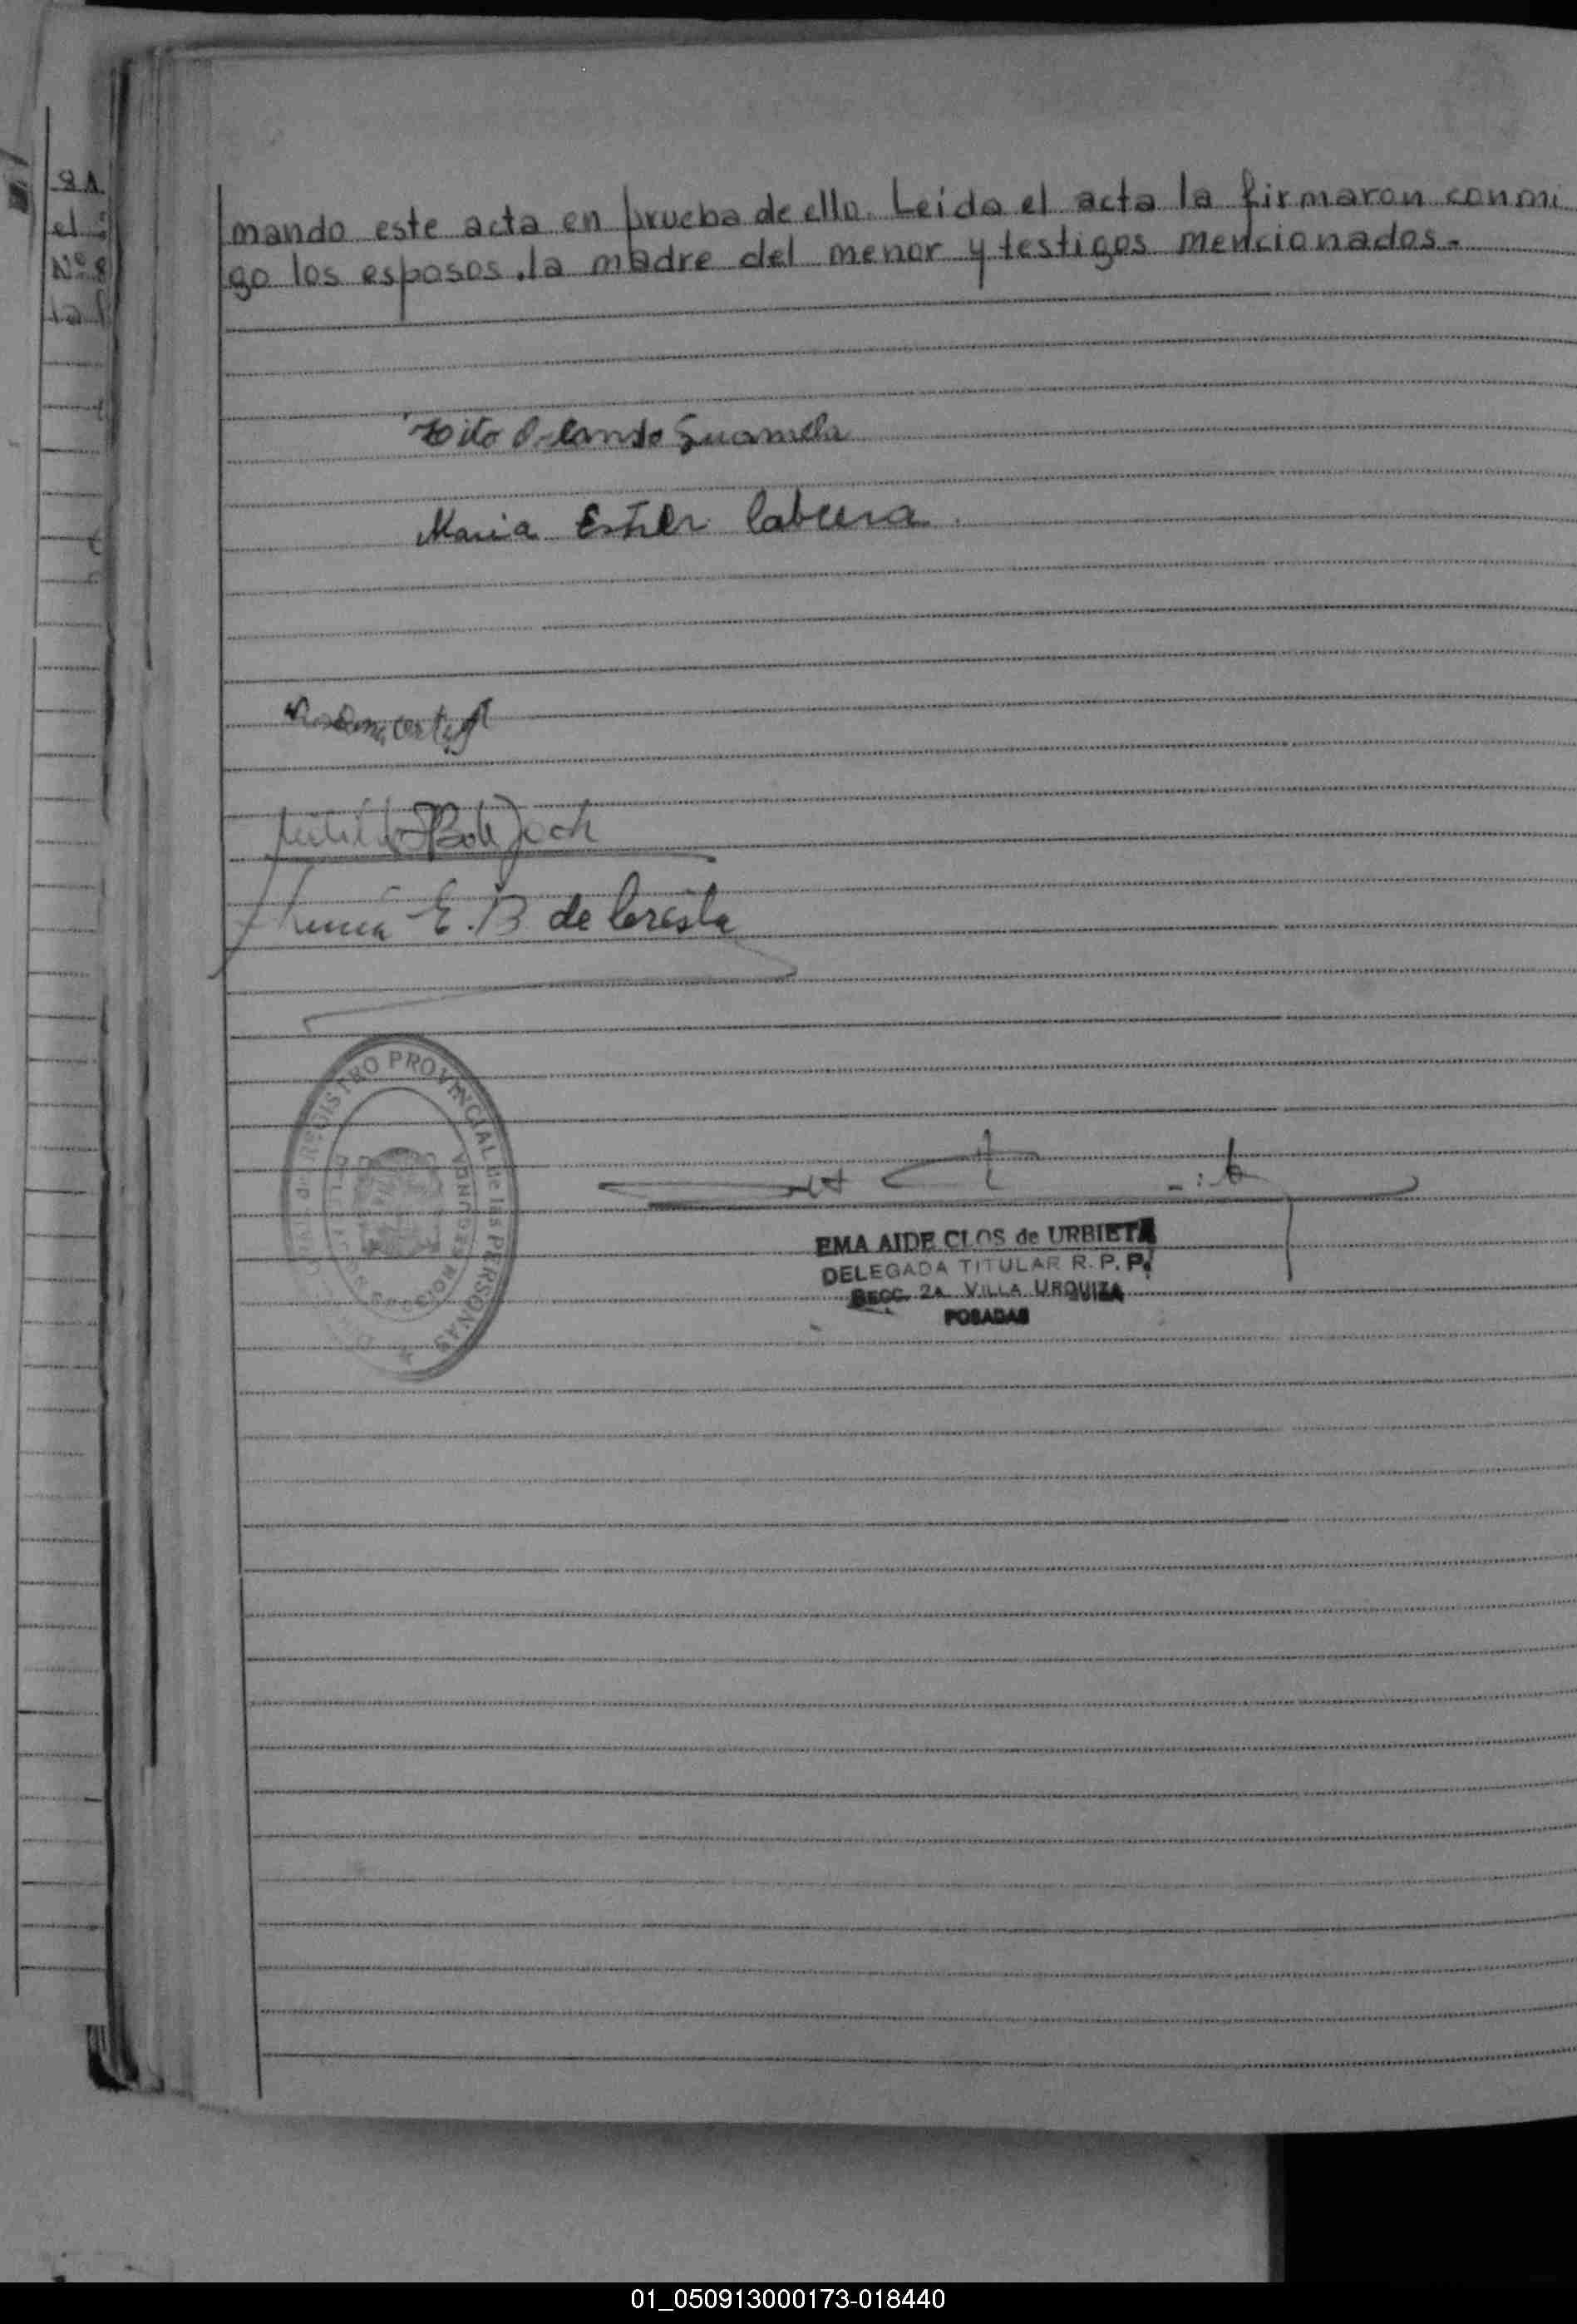 9A
el
Nº 8
la
mando este acta en prueba de ello. Leida el acta la firmaron conmi
go los esposos, la madre del menor y testigos mencionados.-
Tito Orlando
Maria Esther Cabrera
E. B de Cuesta
REGISTRO PROVINCIAL de las PERSONAS
SECCION SEGUNDA
EMA AIDE CLOS de URBIETA
DELEGADA TITULAR R. P. P.
SECC. 2A. VILLA URQUIZA
POSADAS
01_050913000173-018440